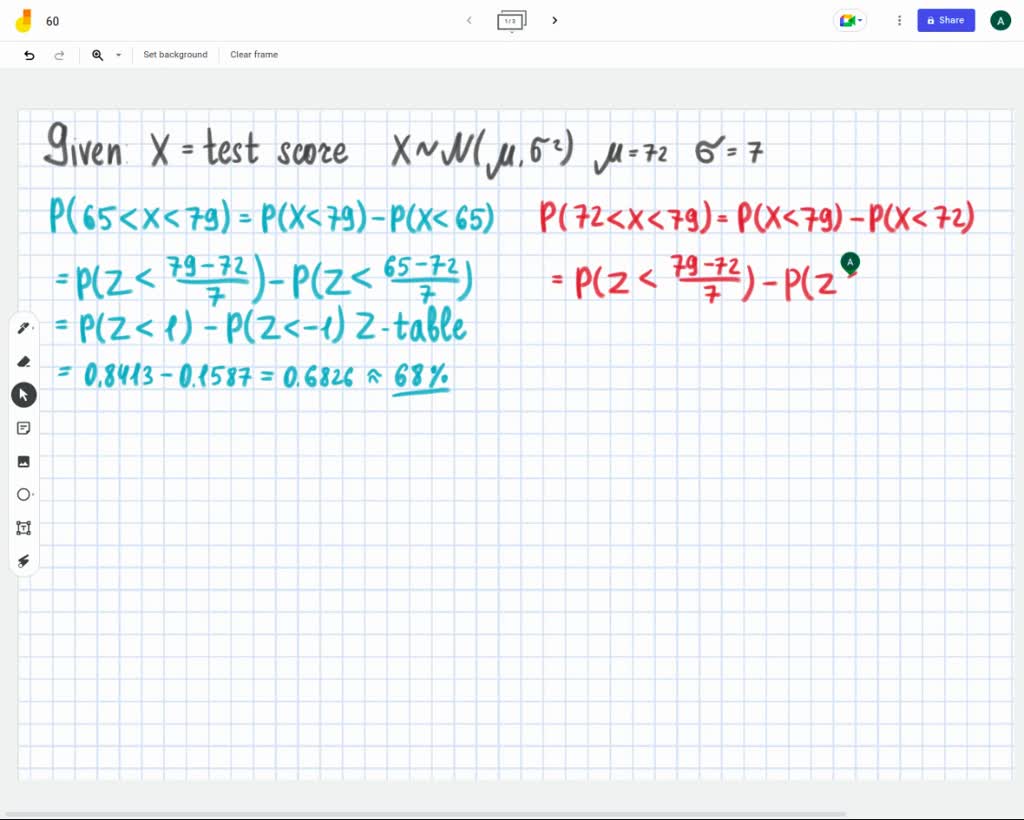 60
1/3
Share
A
Set background
Clear frame
Given: X = test score X ~ N(μ, σ²) μ = 72 σ = 7
P(65 < X < 79) = P(X < 79) - P(X < 65)
= P(Z < (79-72)/7) - P(Z < (65-72)/7)
= P(Z < 1) - P(Z < -1) Z-table
= 0.8413 - 0.1587 = 0.6826 ≈ 68%
P(72 < X < 79) = P(X < 79) - P(X < 72)
= P(Z < (79-72)/7) - P(Z
A